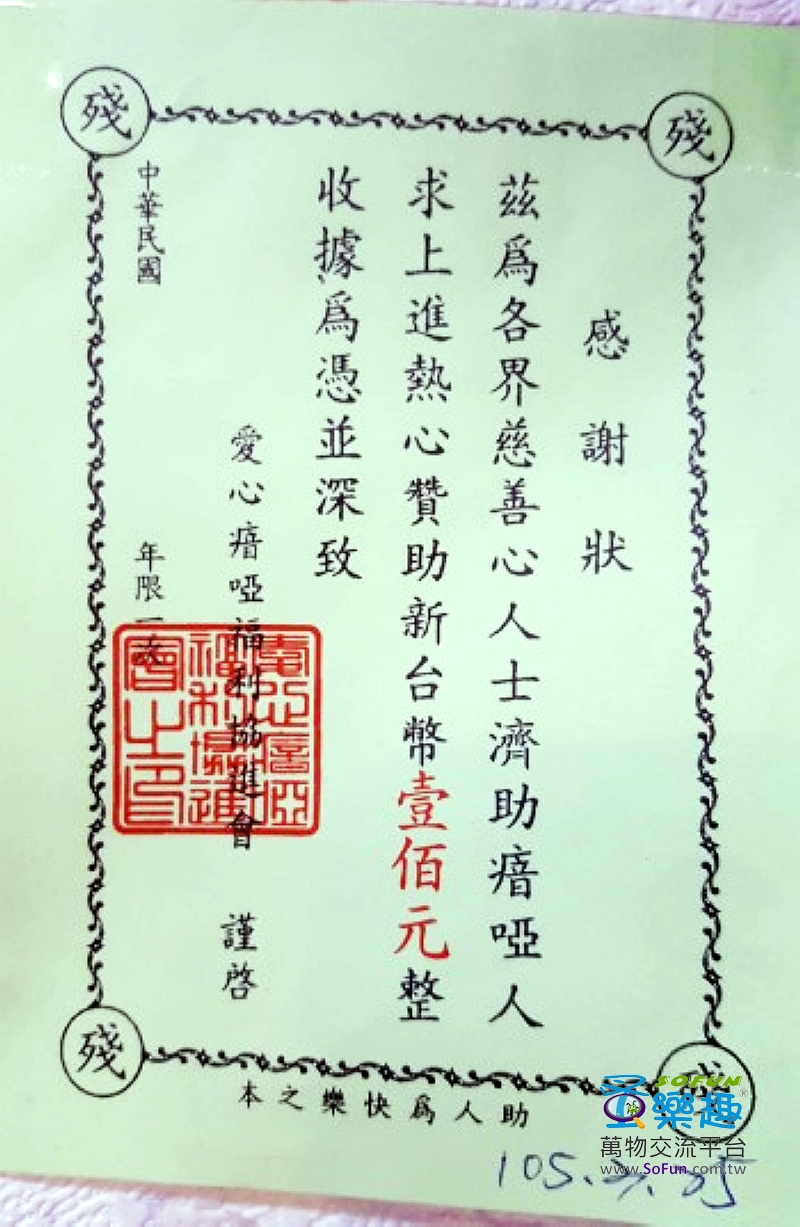 殘
殘
感謝狀
茲爲各界慈善心人士濟助瘖啞人
求上進熱心贊助新台幣壹佰元整
收據爲憑並深致
愛心瘖啞福利協進會 謹啓
中華民國 年限一次
愛心瘖啞
福利協進
會之印
殘
殘
助人爲快樂之本
SOFUN
樂趣
萬物交流平台
www.SoFun.com.tw
105.